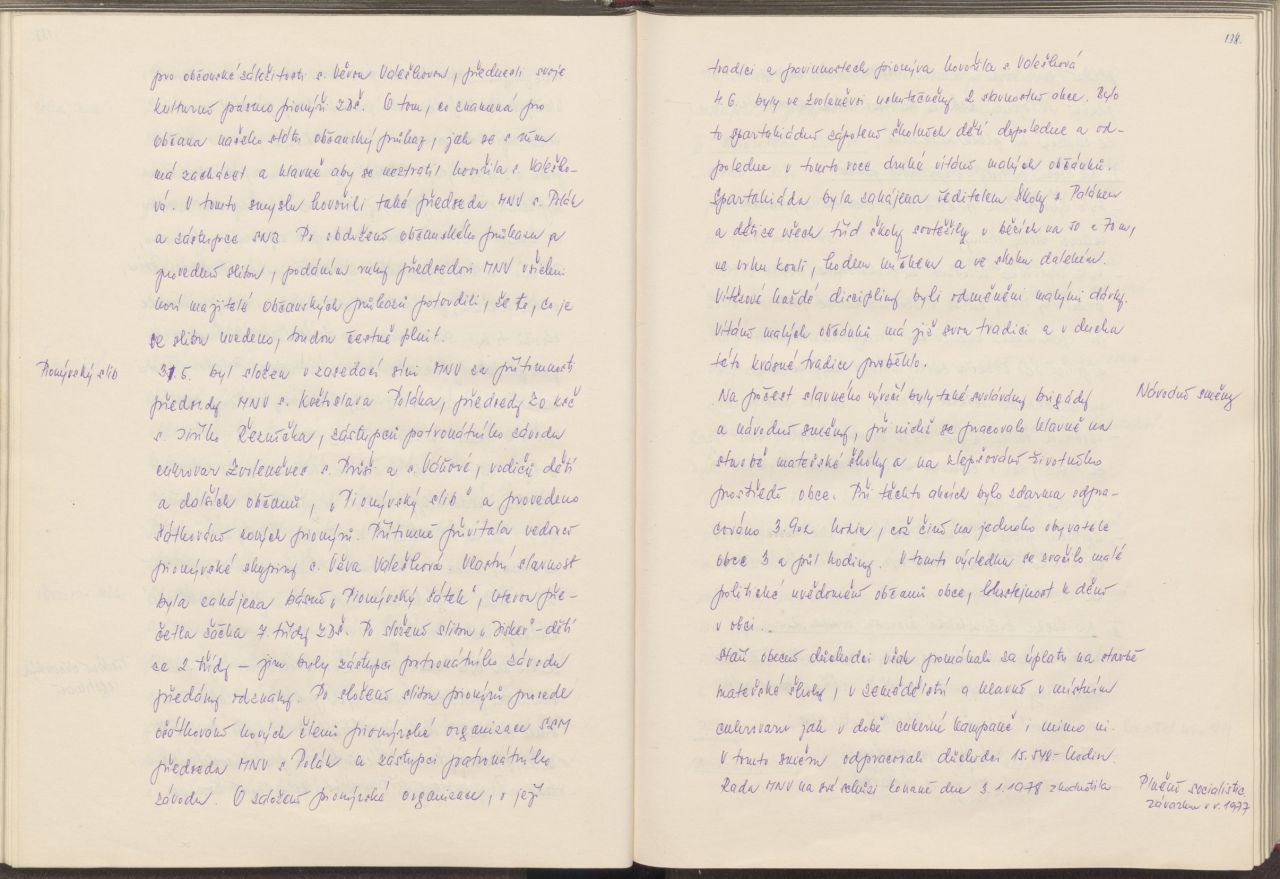 pro občanské záležitosti s. Věrou Valeškovou, přednesli svoje
kulturní pásmo pionýři ZDŠ. O tom, co znamená pro
občana našeho státu občanský průkaz, jak se s ním
má zacházet a hlavně aby se neztratil hovořila s. Valeško-
vá. V tomto smyslu hovořili také předseda MNV s. Polák
a zástupce SNB. Po obdržení občanského průkazu a
provedení slibu, podáním ruky předsedovi MNV všichni
noví majitelé občanských průkazů potvrdili, že to, co je
ve slibu uvedeno, budou čestně plnit.
Pionýrský slib
31.5. byl složen v zasedací síni MNV za přítomnosti
předsedy MNV s. Květoslava Poláka, předsedy ZO KSČ
s. Jiřího Řezníčka, zástupců patronátního závodu
cukrovar Zvoleněves s. a s. , vodičů dětí
a dalších občanů, "Pionýrský slib" a provedeno
šátkování nových pionýrů. Přítomné přivítala vedoucí
pionýrské skupiny s. Věra Valešková. Vlastní slavnost
byla zahájena básní "Pionýrský šátek", kterou pře-
četla žačka 7. třídy ZDŠ. Po složení slibu "Jisker" - dětí
ze 2. třídy - jim byly zástupci patronátního závodu
předány odznaky. Po složení slibu pionýrů provedli
šátkování nových členů pionýrské organizace SSM
předseda MNV s. Polák a zástupci patronátního
závodu. O složení pionýrské organizace, o její
138.
tradici a povinnostech pionýra hovořila s. Valešková
4.6. byly ve Zvoleněvsi uskutečněny 2 slavnostní akce. Bylo
to spartakiádní zápolení školních dětí dopoledne a od-
poledne v tomto roce druhé vítání malých občánků.
Spartakiáda byla zahájena ředitelem školy s. Polákem
a dětice všech tříd školy soutěžily v bězích na 50 a 70 m,
ve vrhu koulí, hodem míčkem a ve skoku dalekém.
Vítězové každé disciplíny byli odměněni malými dárky.
Vítání malých občánků má již svou tradici a v duchu
této krásné tradice proběhlo.
Na počest slavného výročí byly také svolávány brigády
Národní směny
a národní směny, při nichž se pracovalo hlavně na
stavbě mateřské školy a na zlepšování životního
prostředí obce. Při těchto akcích bylo zdarma odpra-
cováno 3.902 hodin, což činí na jednoho obyvatele
obce 3 a půl hodiny. V tomto výsledku se zračilo malé
politické uvědomění občanů obce, lhostejnost k dění
v obci.
Staří obecní důchodci však pomáhali za úplatu na stavbě
mateřské školy, v zemědělství a hlavně v místním
cukrovaru jak v době cukerné kampaně i mimo ni.
V tomto směru odpracovali důchodci 15.548 - hodin.
Rada MNV na své schůzi konané dne 3.1.1978 zhodnotila
Plnění socialistic.
závazku v r. 1977